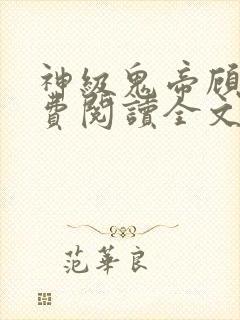 神級鬼帝顾
費閱讀全文
范華良